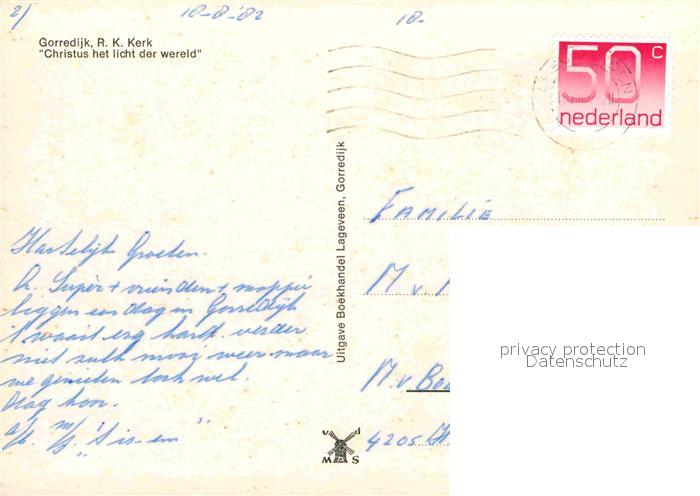 2/ 18-8-'82 18-
Gorredijk, R. K. Kerk
"Christus het licht der wereld"
50 c
nederland
Uitgave Boekhandel Lageveen, Gorredijk
FAMILIE
M v.
M. v. Boe
4205
Hartelijk Groeten.
vrienden + 
liggen een dag in Gorredijk
't waait erg hard. verder
niet zulk mooy weer maar
we genieten toch wel.
Dag hoor.
a/b. m/s "Sis-em"
v d
M S
privacy protection
Datenschutz